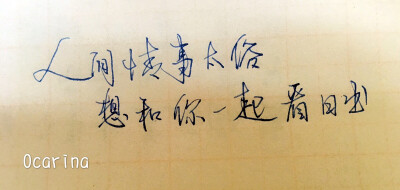 人间情事太俗
想和你一起看日出
Ocarina